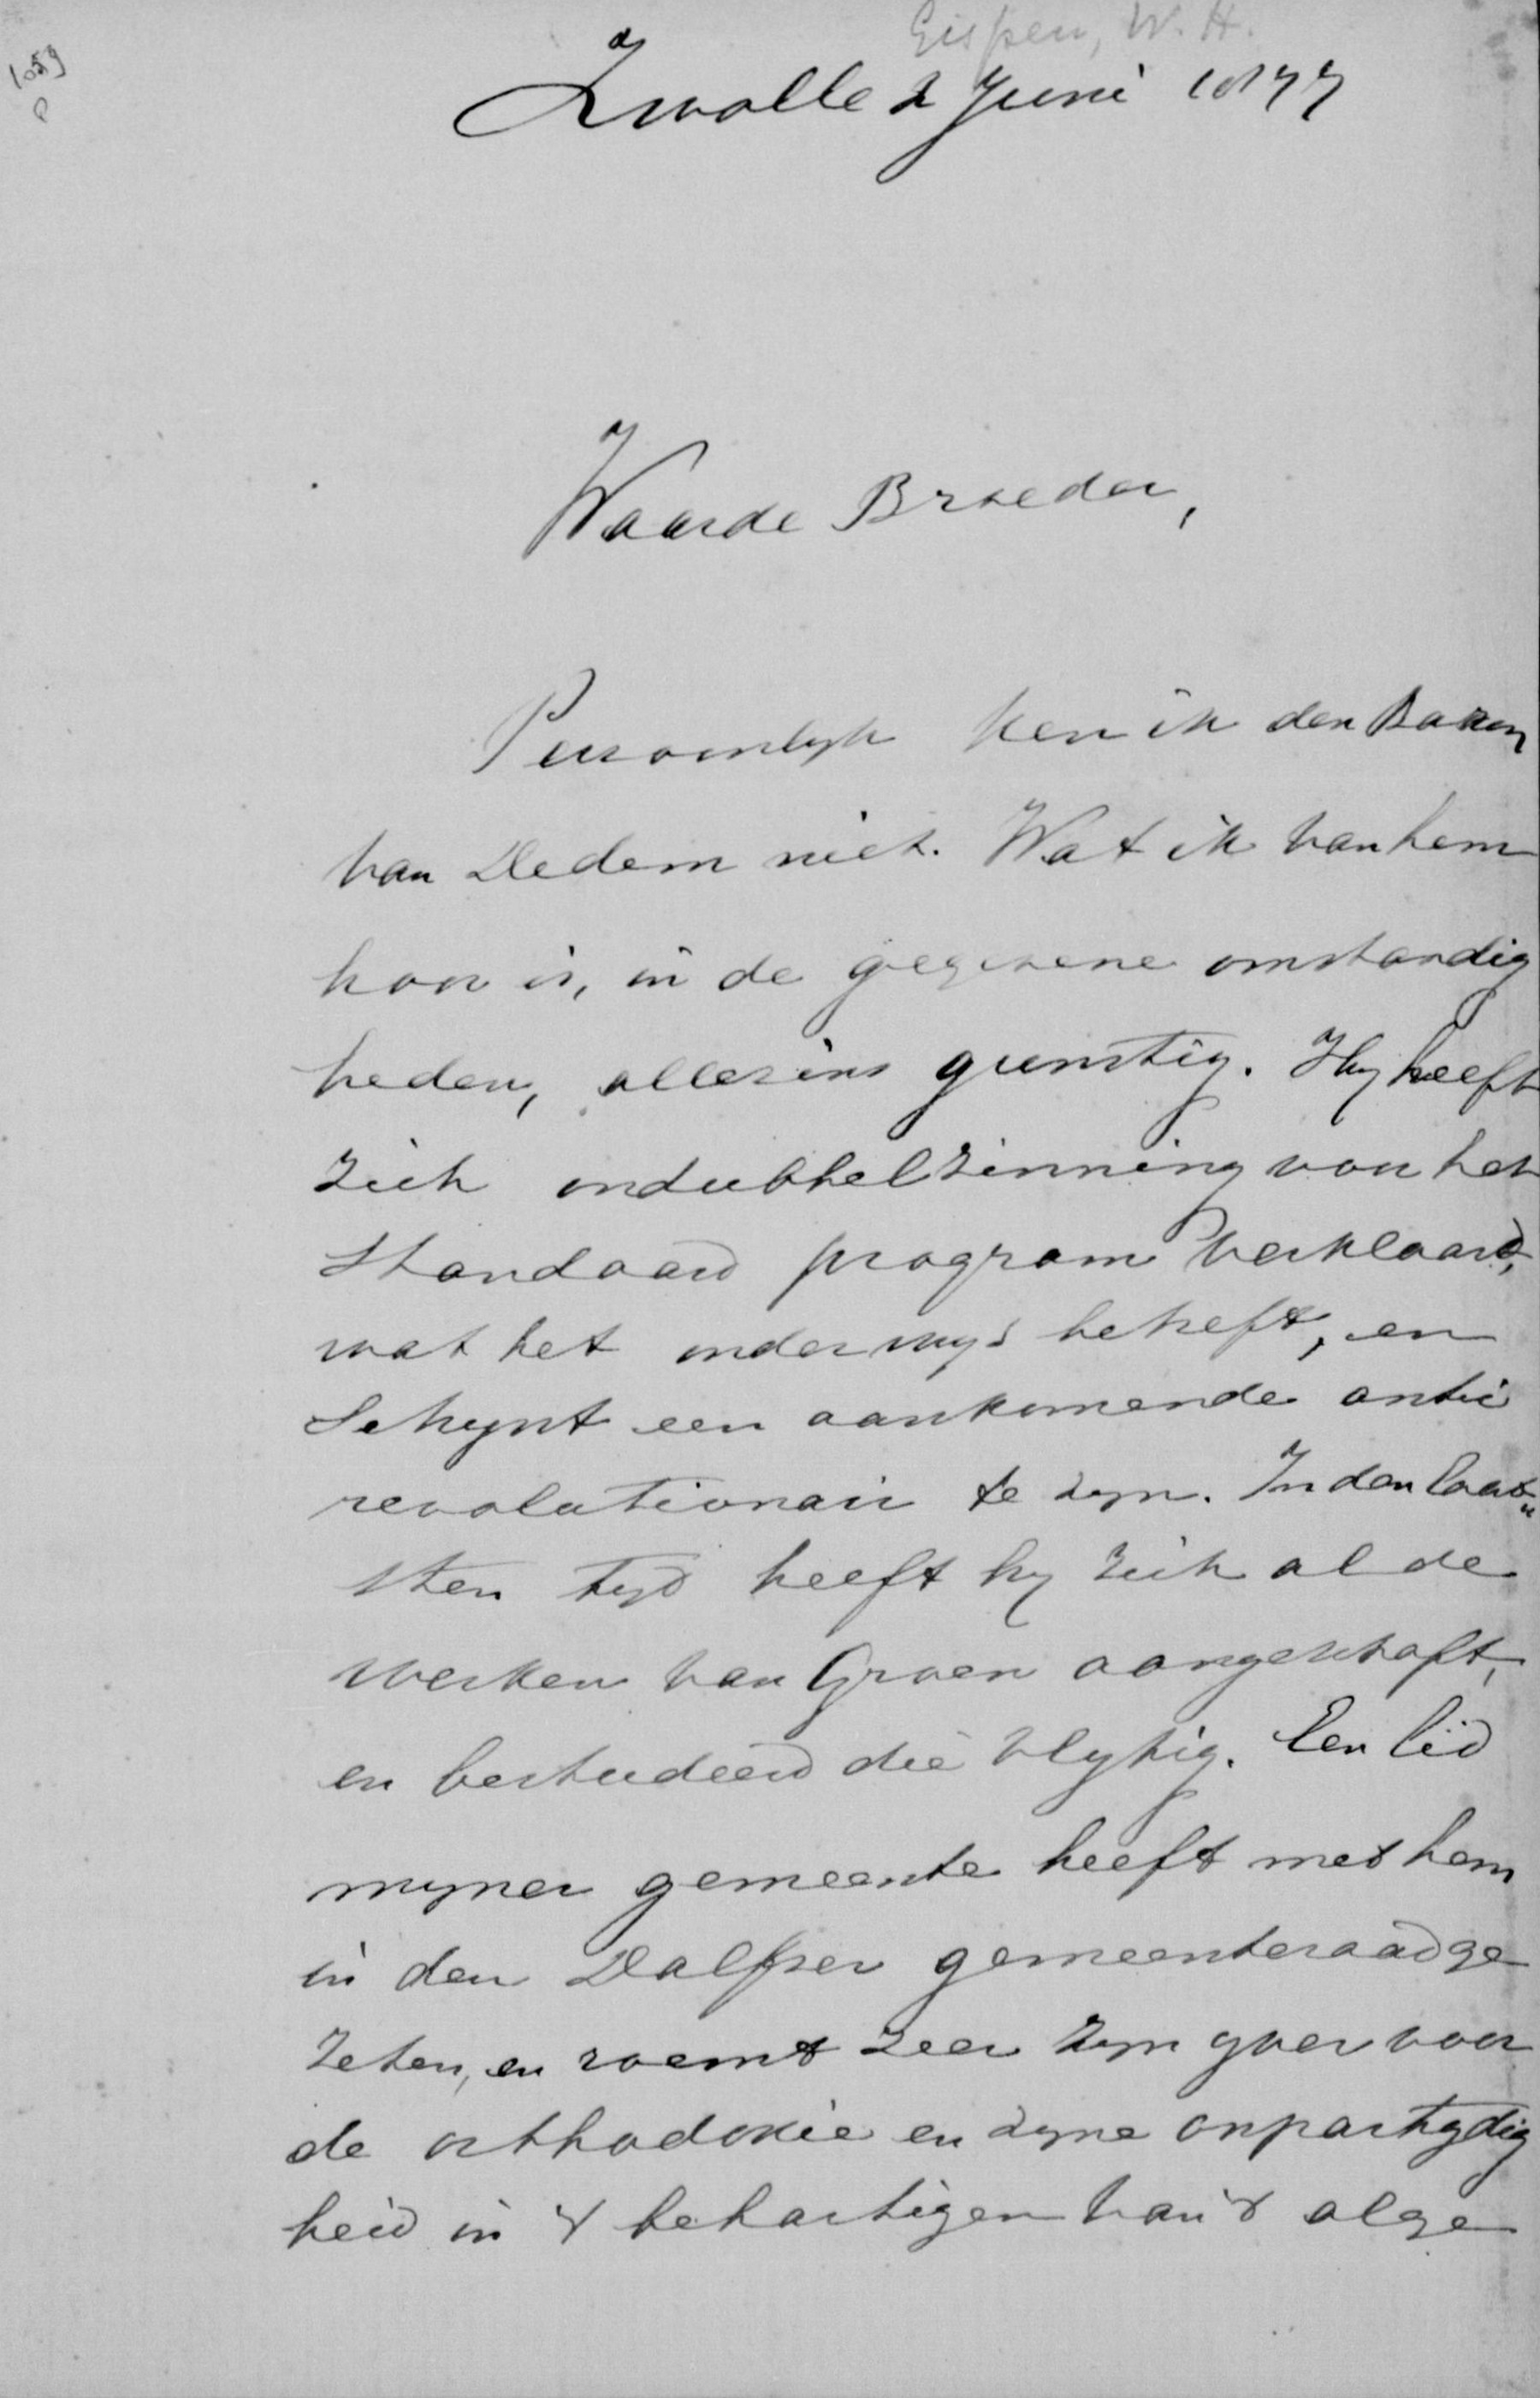 Gispen, W. H.
1059
Zwolle 2 Juni 1877
Waarde Broeder,
Persoonlyk ken ik den Baron
van Dedem niet. Wat ik van hem
hoor is, in de gegevene omstandig
heden, allezins gunstig. Hy heeft
zich ondubbelzinning voor het
Standaard program verklaard,
wat het onderwys betreft, en
schynt een aankomende anti
revolutionair te zyn. In den laat„
sten tyd heeft hy zich al de
werken van Groen aangeschaft,
en bestudeerd die vlytig. Een lid
myner gemeente heeft met hem
in den Dalfser gemeenteraad ge
zeten, en roemt zeer zyn yver voor
de orthodoxie en zyne onpartydig
heid in 't behartigen van 't alge